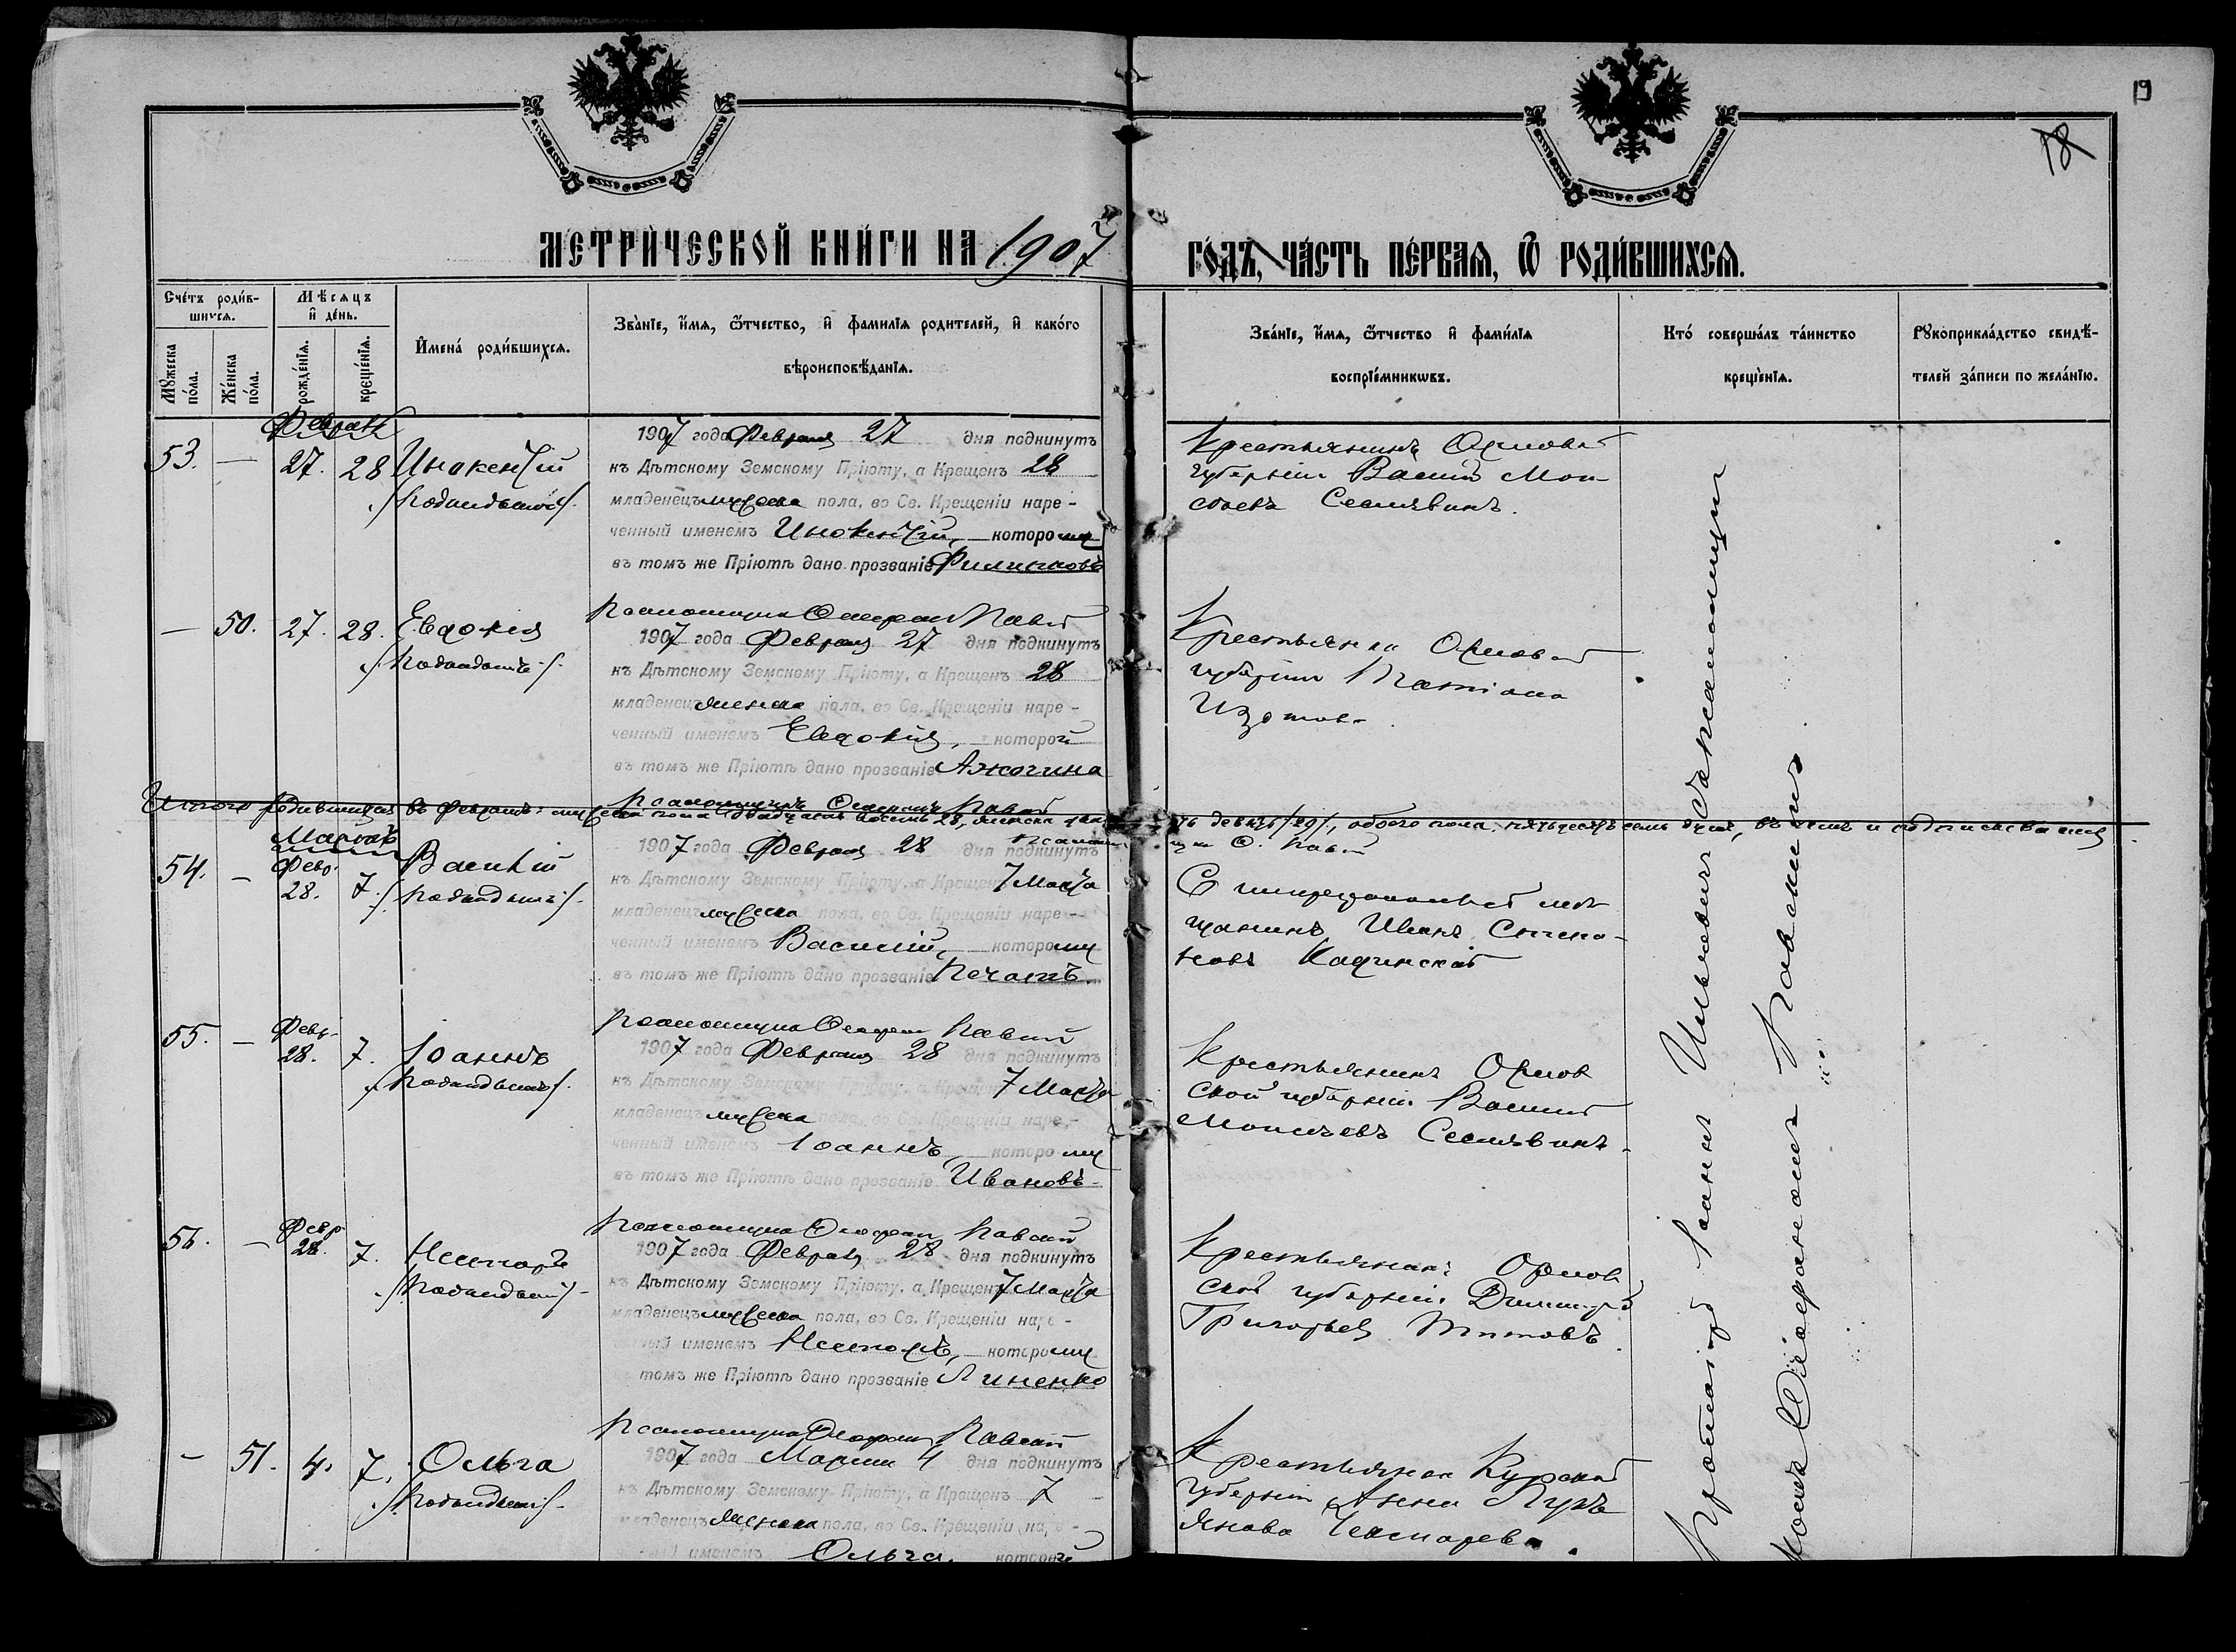 19
18
МЕТРИЧЕСКОЙ КНИГИ НА 1907 ГОДЪ, ЧАСТЬ ПЕРВАЯ, Ѿ РОДИВШИХСЯ.
Счетъ родив-
шихся.
Мꙋжеска пола.
Женска пола.
Мѣсяцъ и день.
рожденїя.
крещенїя.
Имена родившихся.
Званїе, имя, ѿтчество, и фамилїя родителей, и какого
вѣроисповѣданїя.
Званїе, имя, ѿтчество и фамилїя
воспрїемникѡвъ.
Кто совершалъ таинство
крещенїя.
Рꙋкоприкладство свидѣ-
телей записи по желанїю.
Февраль
53. — 27. 28 Инокентій
/Подкидышъ/.
1907 года Февраля 27 дня подкинутъ
къ Дѣтскому Земскому Пріюту, а Крещенъ 28
младенецъ мужеска пола, во Св. Крещеніи наре-
ченный именемъ Инокентій, которому
въ томъ же Пріютѣ дано прозваніе Филипповъ
Крестьянинъ Орловской
губерніи Василій Мои-
сѣевъ Селявинъ.
Псаломщикъ Павскій
— 50. 27. 28. Евдокія
/Подкидышъ/.
1907 года Февраля 27 дня подкинутъ
къ Дѣтскому Земскому Пріюту, а Крещенъ 28
младенецъ женска пола, во Св. Крещеніи наре-
ченный именемъ Евдокія, которой
въ томъ же Пріютѣ дано прозваніе Ажогина
Крестьянка Орловской
губерніи Татіана
Изотова
Псаломщикъ Павскій
Итого родившихся въ февралѣ: мужеска пола двадцать восемь 28, женска двадцать девять /29/, обоего пола пятьдесятъ семь душъ, въ чемъ и подписываемся
Псаломщикъ Ѳ. Павскій
Мартъ
54. — Февр. 28. 7. Василій
/Подкидышъ/.
1907 года Февраля 28 дня подкинутъ
къ Дѣтскому Земскому Пріюту, а Крещенъ 7 Марта
младенецъ мужеска пола, во Св. Крещеніи наре-
ченный именемъ Василій, которому
въ томъ же Пріютѣ дано прозваніе Печать.
Симферопольскій мѣ-
щанинъ Иванъ Степа-
новъ
Псаломщикъ Павскій
55. — Февр. 28. 7. Іоаннъ
/Подкидышъ/.
1907 года Февраля 28 дня подкинутъ
къ Дѣтскому Земскому Пріюту, а Крещенъ 7 Марта
младенецъ мужеска пола, во Св. Крещеніи наре-
ченный именемъ Іоаннъ, которому
въ томъ же Пріютѣ дано прозваніе Ивановъ
Крестьянинъ Орлов
ской губерніи Василій
Моисѣевъ Селявинъ.
Псаломщикъ Павскій
56. — Февр. 28. 7. Несторъ
/Подкидышъ/
1907 года Февраля 28 дня подкинутъ
къ Дѣтскому Земскому Пріюту, а Крещенъ 7 Марта
младенецъ мужеска пола, во Св. Крещеніи наре-
именемъ Несторъ, которому
томъ же Пріютѣ дано прозваніе Линенко
Крестьянинъ Орлов
ской губерніи Димитрій
Григорьевъ Титовъ.
Псаломщикъ Павскій
— 51. 4. 7. Ольга
/Подкидышъ/.
1907 года Марта 4 дня подкинутъ
къ Дѣтскому Земскому Пріюту, а Крещенъ 7
младенецъ женска пола, во Св. Крещеніи наре-
именемъ Ольга, которой
Крестьянка Курской
губерніи Анна Лукь
янова
Протоіерей Іоаннъ Ильичъ
Павскимъ